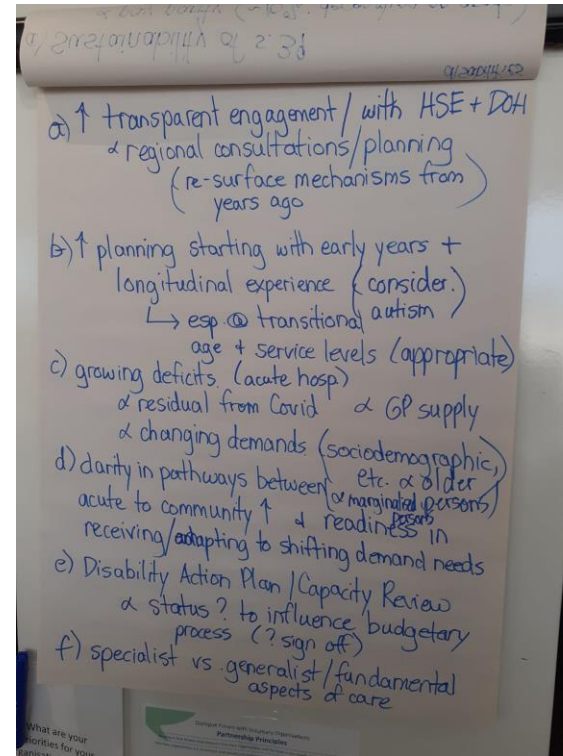 a) Sustainability of S. 39
a) ↑ transparent engagement / with HSE + DOH
& regional consultations/planning
(re-surface mechanisms from
years ago)
b) ↑ planning starting with early years +
longitudinal experience (consider.
autism)
↳ esp. @ transitional
age + service levels (appropriate)
c) growing deficits. (acute hosp)
& residual from Covid & GP supply
& changing demands (sociodemographic,
etc. & older
persons)
d) clarity in pathways between (& marginalised
persons)
acute to community ↑ & readiness in
receiving/adapting to shifting demand needs
e) Disability Action Plan / Capacity Review
& status? to influence budgetary
process (? sign off)
f) specialist vs. generalist/fundamental
aspects of care
What are your
priorities for your
Dialogue Forum with Voluntary Organisations
Partnership Principles